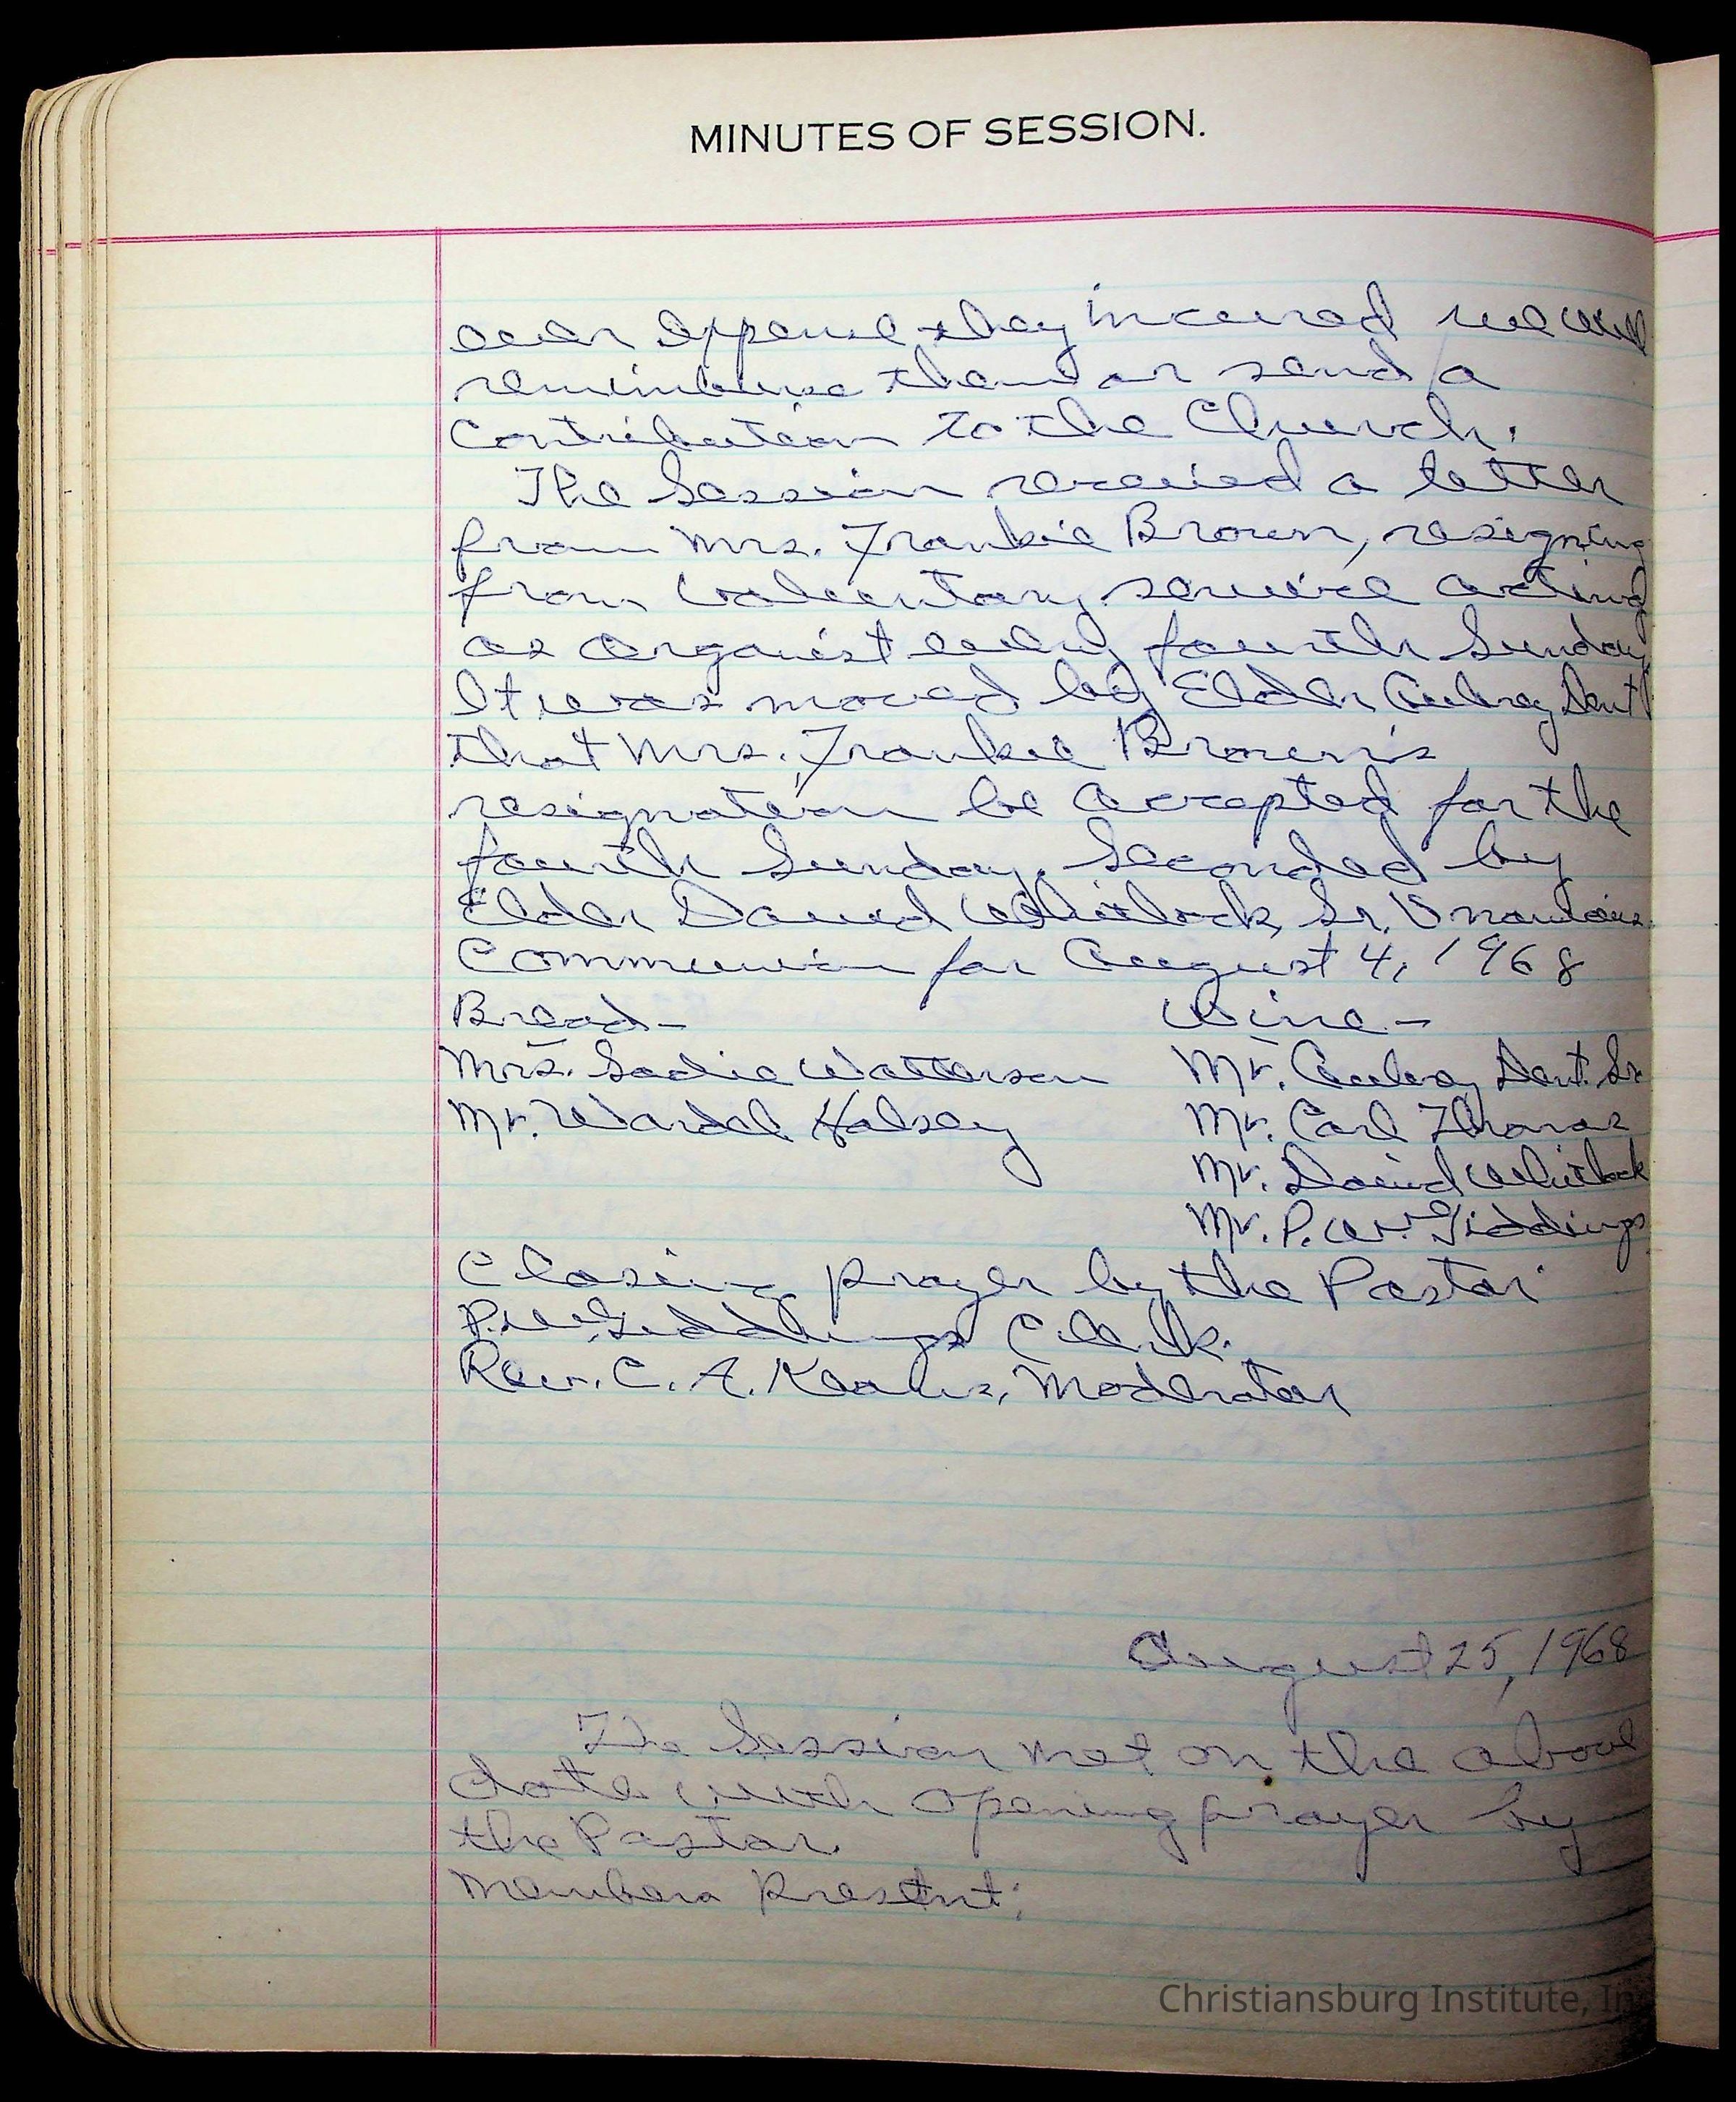 MINUTES OF SESSION.
ever expense they incurred we will
reimburse them or send a
Contribution to the Church.
The Session received a letter
from Mrs. Frankie Brown, resigning
from Voluntary service acting
as Organist every fourth Sunday
It was moved by Elder Aubrey Dent
that Mrs. Frankie Brown's
resignation be accepted for the
fourth Sunday. Seconded by
Elder David Whitlock, Sr.
Communion for August 4, 1968
Bread - Wine -
Mrs. Sadie Watterson Mr. Aubrey Dent Sr
Mr. Wardel Halsey Mr. Carl Thomas
Mr. David Whitlock
Mr. P. Wm Giddings
Closing prayer by the Pastor
P. Wm Giddings Clerk.
Rev. C. A. Moderator
August 25, 1968
The Session met on the above
date with opening prayer by
the Pastor.
Members Present:
Christiansburg Institute, In